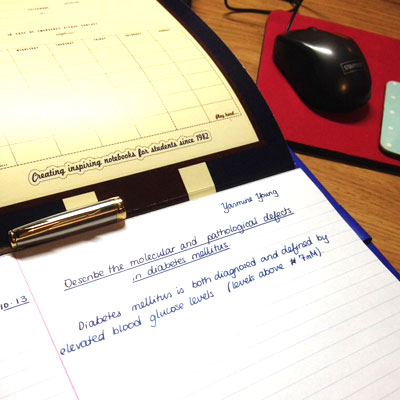 IN CASE OF EMERGENCY PLEASE CONTACT
WEDNESDAY
THURSDAY
FRIDAY
SATURDAY
Play hard...
Creating inspiring notebooks for students since 1982
Yasmine Young
Describe the molecular and pathological defects
in diabetes mellitus.
10.13
Diabetes mellitus is both diagnosed and defined by
elevated blood glucose levels (levels above 7mM).